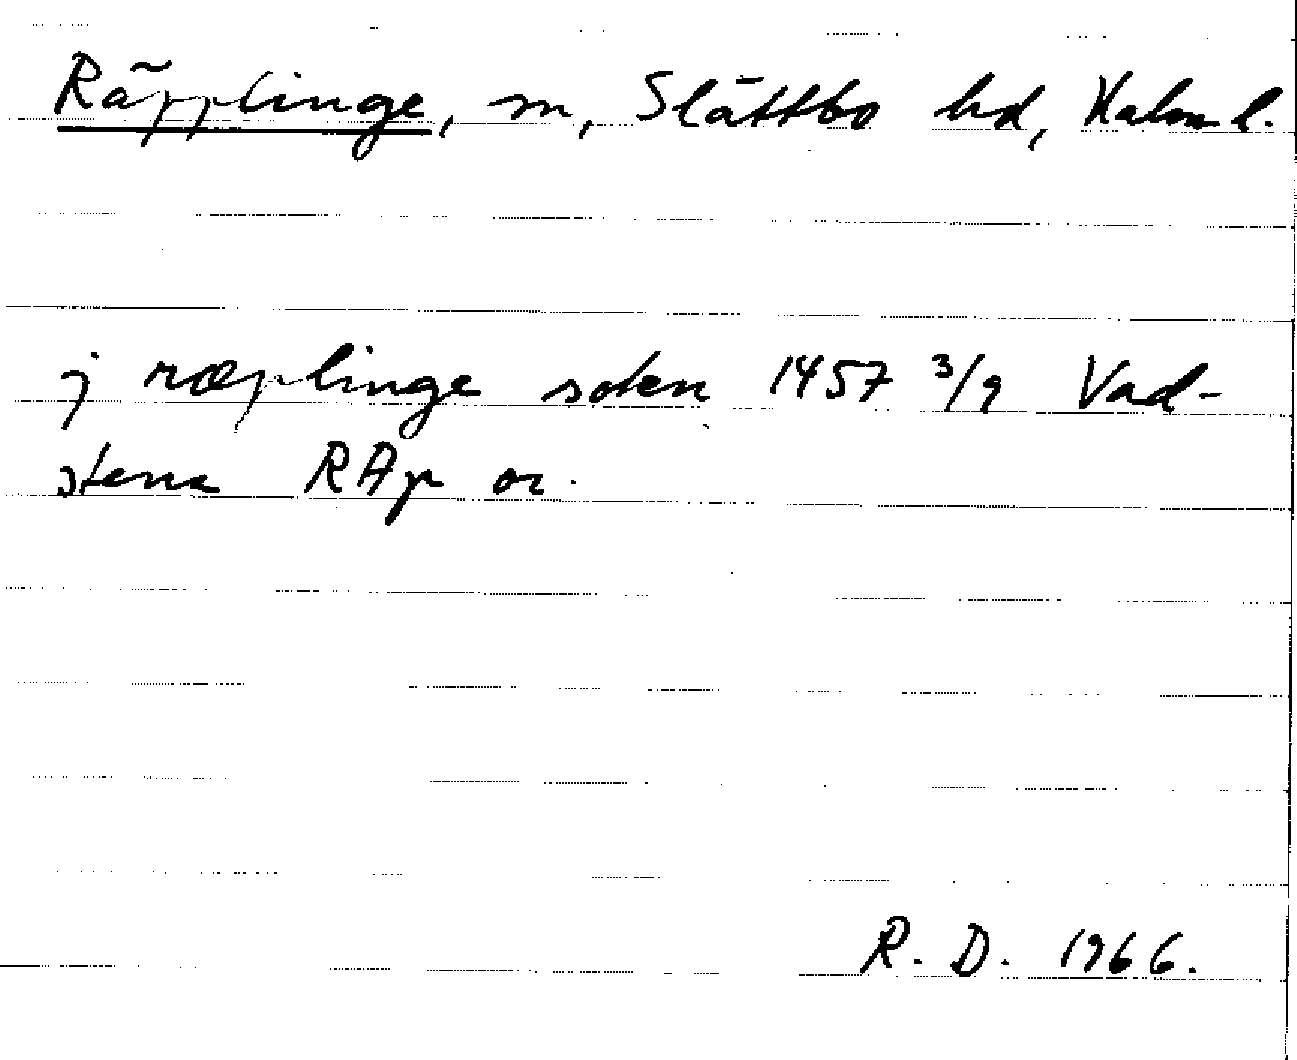 Räpplinge, sn, Slättbo hd, Kalm l.
j ræplinge soken 1457 3/9 Vad-
stena RAp or.
R. D. 1966.